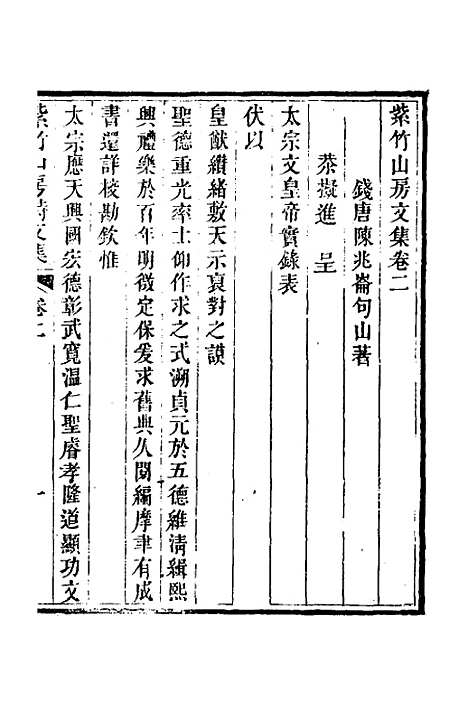 紫竹山房文集卷二
錢唐陳兆崙句山著
恭擬進呈
太宗文皇帝實錄表
伏以
皇猷纘緒敷天示裒對之謨
聖德重光率土仰作求之式溯貞元於五德維淸緝熙
興禮樂於百年明徵定保爰求舊典久閟編摩聿有成
書還詳校勘欽惟
太宗應天興國宏德彰武寬温仁聖睿孝隆道顯功文
紫竹山房詩文集
卷二
一